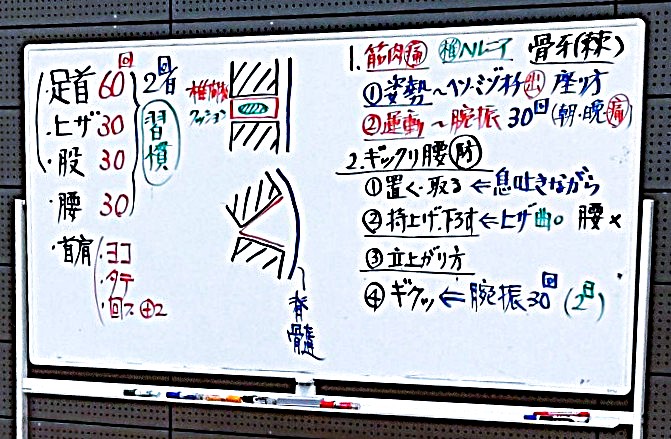 足首 60回
・ヒザ 30
・股 30
・腰 30
2日
習慣
・首肩
・ヨコ
・タテ
・回ス
椎間板
クッション
脊髄
1. 筋肉痛 椎ヘルニア 骨牙(棘)
①姿勢〜ヘソ・ミゾオチ出 座り方
②運動〜腕振 30回(朝・晩・痛)
2.ギックリ腰 防
①置く・取る ⇐息吐きながら
②持上げ・下ろす⇐ヒザ曲○ 腰×
③立上がり方
④ギクッ⇐腕振30回(2日)